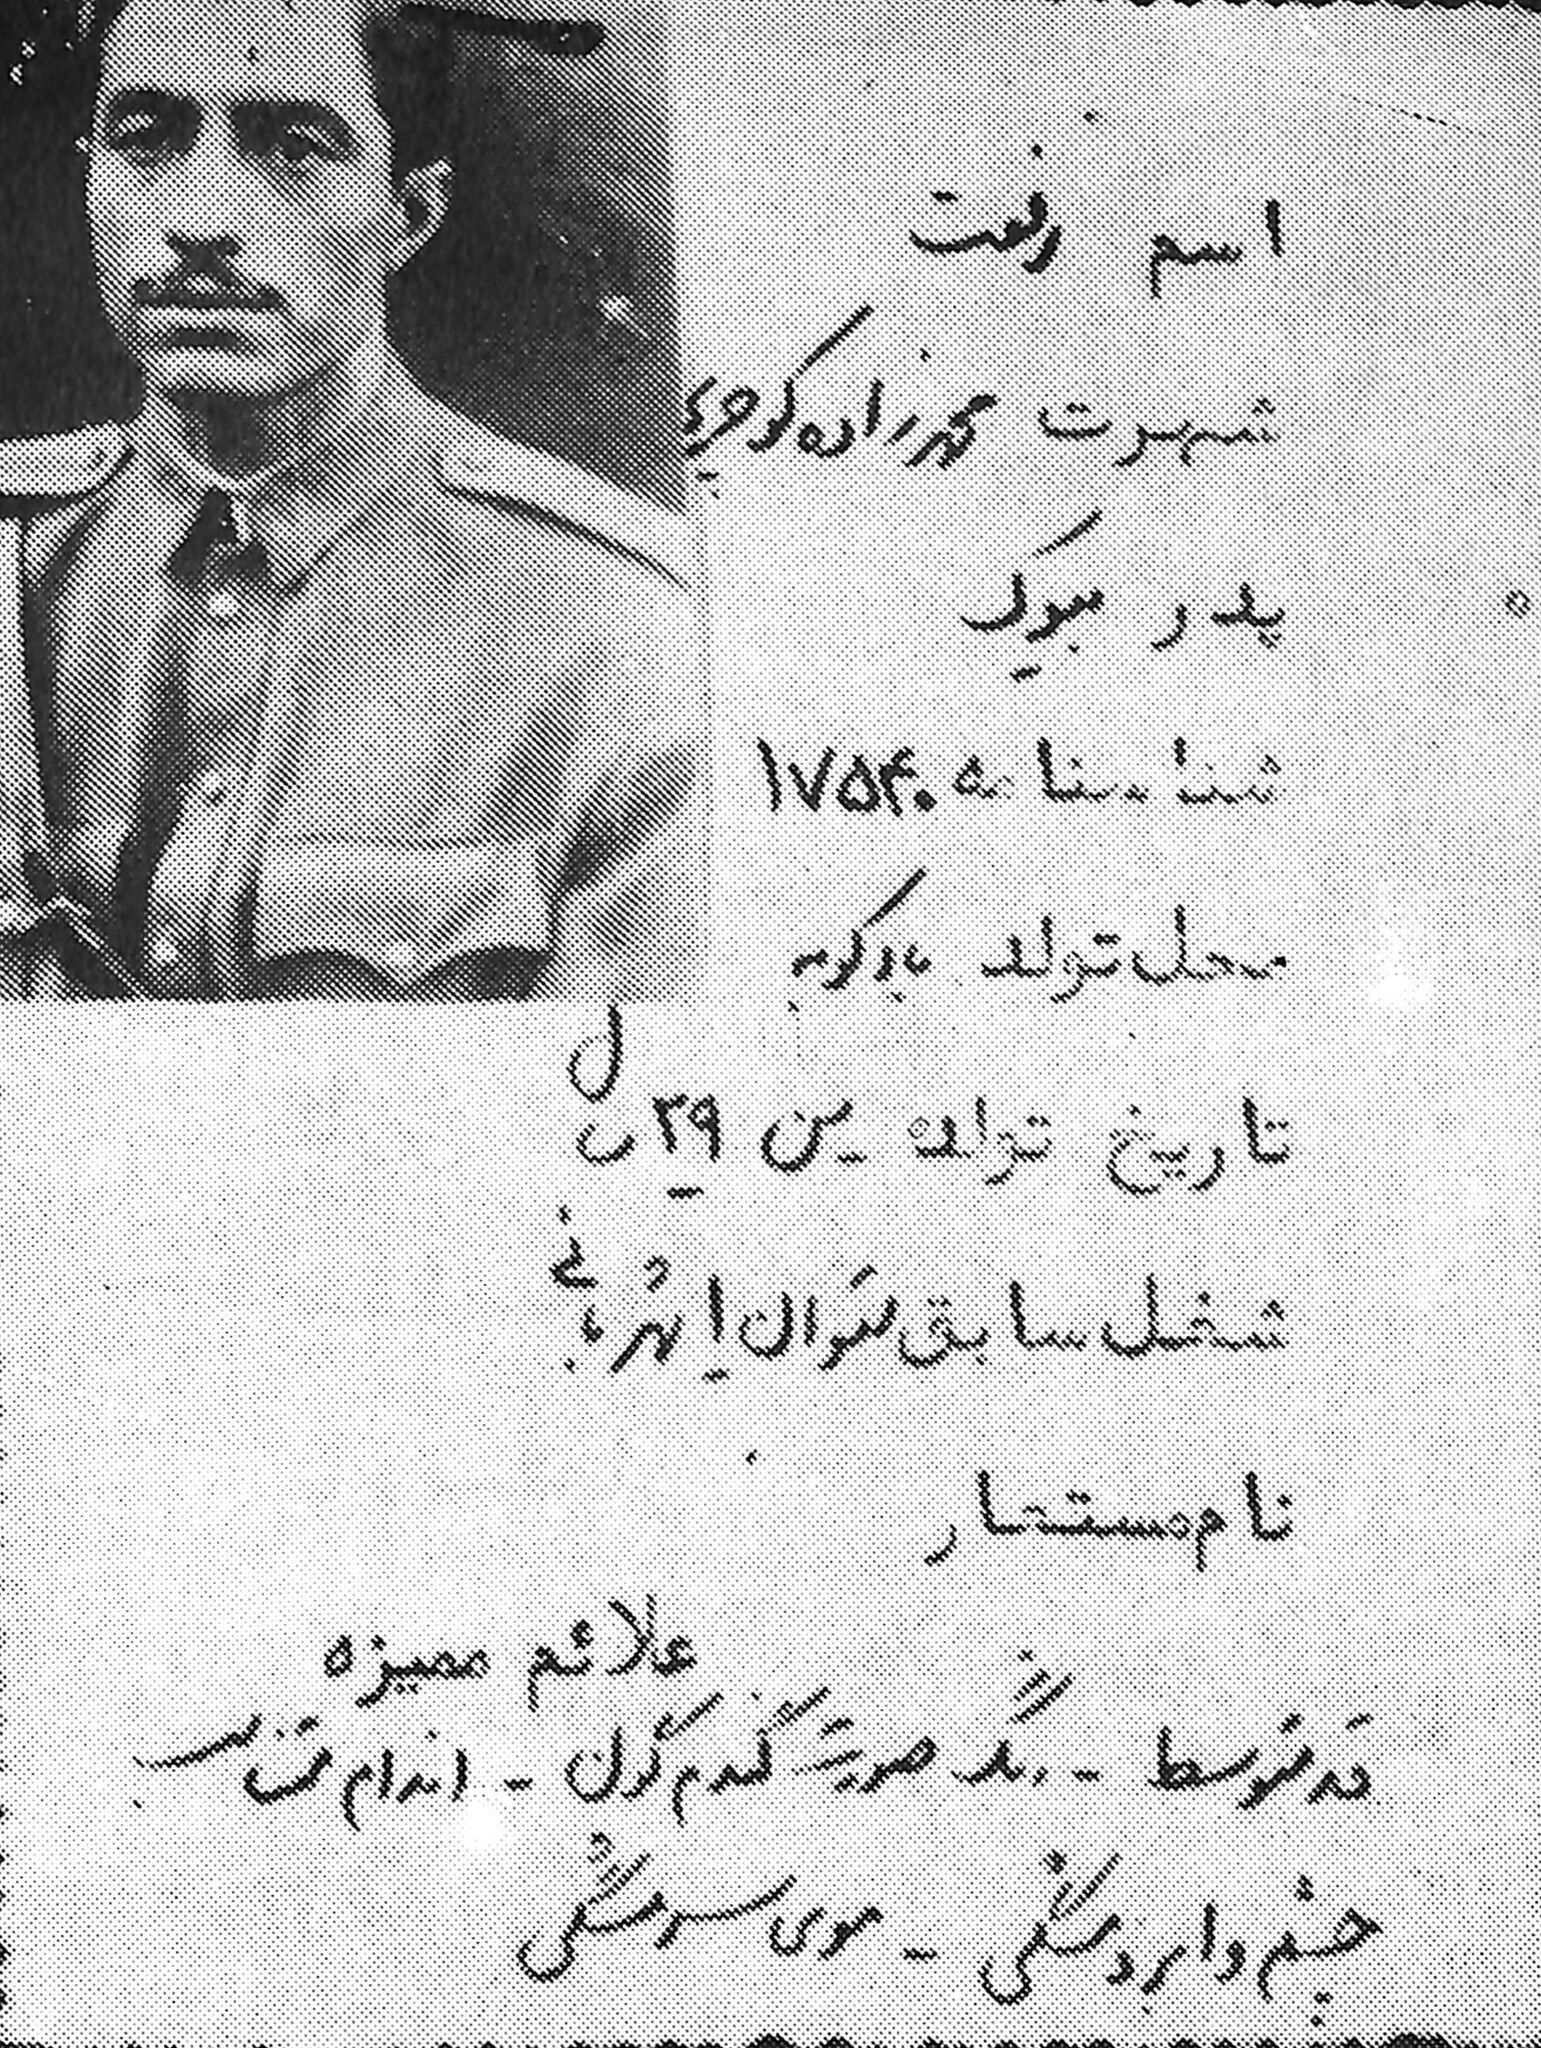 اسم رفعت
شهرت محمدزاده کوچری
پدر
شناسنامه ۱۷۵۴۰
محل تولد بادکوبه
تاریخ تولد ۳۹ ل
شغل سابق ستوان ۱ شهربانی
نام مستعار
علائم ممیزه
قد متوسط - رنگ صورت گندم گون - اندام متناسب
چشم و ابرو مشگی - موی سر مشگی